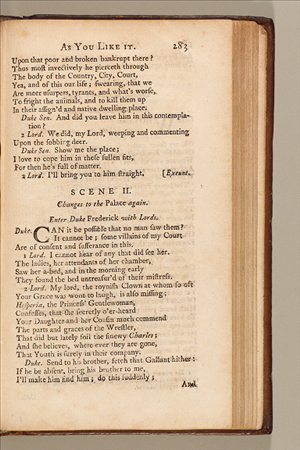 As You Like it. 283
Upon that poor and broken bankrupt there?
Thus most invectively he pierceth through
The body of the Country, City, Court,
Yea, and of this our life; swearing, that we
Are meer usurpers, tyrants, and what's worse,
To fright the animals, and to kill them up
In their assign'd and native dwelling place.
Duke Sen. And did you leave him in this contempla-
tion?
2 Lord. We did, my Lord, weeping and commenting
Upon the sobbing deer.
Duke Sen. Show me the place;
I love to cope him in these sullen fits,
For then he's full of matter.
2 Lord. I'll bring you to him straight. [Exeunt.
SCENE II.
Changes to the Palace again.
Enter Duke Frederick with Lords.
Duke. CAN it be possible that no man saw them?
It cannot be; some villains of my Court
Are of consent and sufferance in this.
1 Lord. I cannot hear of any that did see her.
The ladies, her attendants of her chamber,
Saw her a-bed, and in the morning early
They found the bed untreasur'd of their mistress.
2 Lord. My lord, the roynish Clown at whom so oft
Your Grace was wont to laugh, is also missing:
Hesperia, the Princess' Gentlewoman,
Confesses, that she secretly o'er-heard
Your Daughter and her Cousin much commend
The parts and graces of the Wrestler,
That did but lately foil the sinewy Charles;
And she believes, where ever they are gone,
That Youth is surely in their company.
Duke. Send to his brother, fetch that Gallant hither:
If he be absent, bring his brother to me,
I'll make him find him; do this suddenly;
And